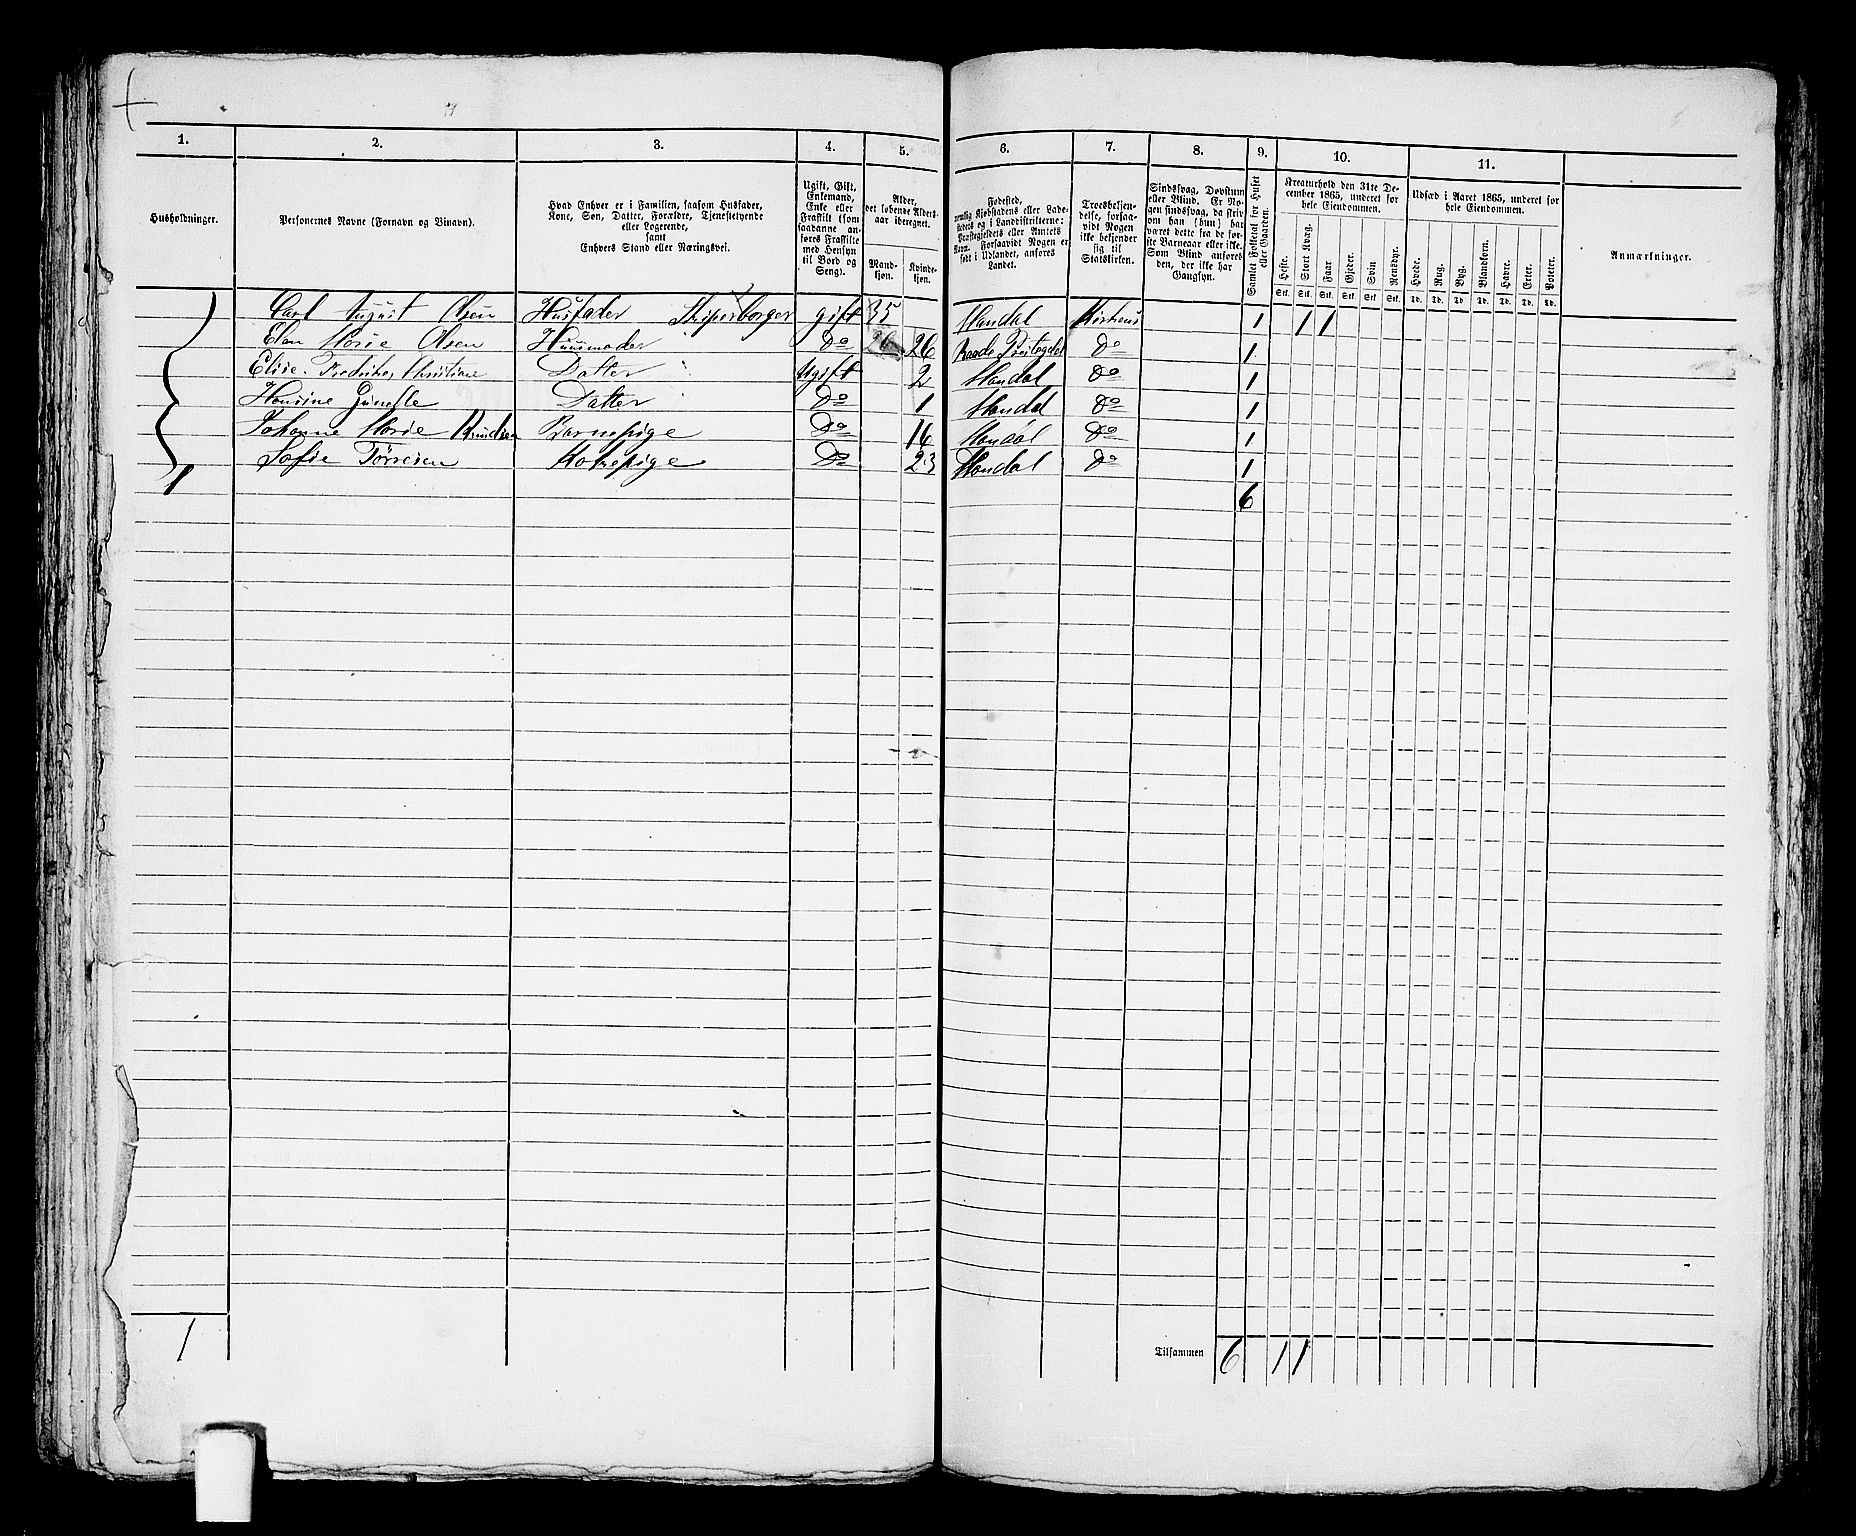 1. 2. 3. 4. 5. 6. 7. 8. 9. 10. 11.
Husholdninger.
Personernes Navne (Fornavn og Binavn).
Hvad Enhver er i Familien, saasom Husfader,
Kone, Søn, Datter, Forældre, Tjenestetyende
eller Logerende,
samt
Enhvers Stand eller Næringsvei.
Ugift, Gift,
Enkemand,
Enke eller
Fraskilt (som
saadanne an-
føres Fraskilte
med Hensyn
til Bord og
Seng).
Alder,
det løbende Alders-
aar iberegnet.
Mand-
kjøn.
Kvinde-
kjøn.
Fødested,
nemlig Kjøbstadens eller Lade-
stedets og i Landdistrikterne:
Præstegjeldets eller Amtets
Navn. Forsaavidt Nogen er
født i Udlandet, anføres
Landet.
Troesbekjen-
delse, forsaa-
vidt Nogen
ikke bekjender
sig til
Statskirken.
Sindssvag, Døvstum
eller Blind. Er No-
gen sindssvag, da skriv
om han (hun) har
været dette fra de før-
ste Barneaar eller ikke.
Som Blind anføres
den, der ikke har
Gangsyn.
Samlet Folketal for Huset
eller Gaarden.
Kreaturhold den 31te De-
cember 1865, underet for
hele Eiendommen.
Heste. Stort Kvæg. Faar Gjeder. Svin Rensdyr.
Stk. Stk. Stk. Stk. Stk. Stk.
Udsæd i Aaret 1865, underet for
hele Eiendommen.
Hvede. Rug. Byg. Blandkorn. Havre. Erter. Poteter.
Td. Td. Td. Td. Td. Td. Td.
Anmærkninger.
Carl August Olsen Husfader Skipsborger gift 35 Mandal 1 1 1
Marie Olsen Husmoder Do 26 26 Do 1
Elise Fredrikke Christine Datter Ugift 2 Mandal Do 1
Datter Do 1 Mandal Do 1
Johanne Marie Knudsen Barnepige Do 16 Mandal Do 1
Sofie Tørresen Kokepige Do 23 Mandal Do 1
1 6
1 Tilsammen 6 1 1